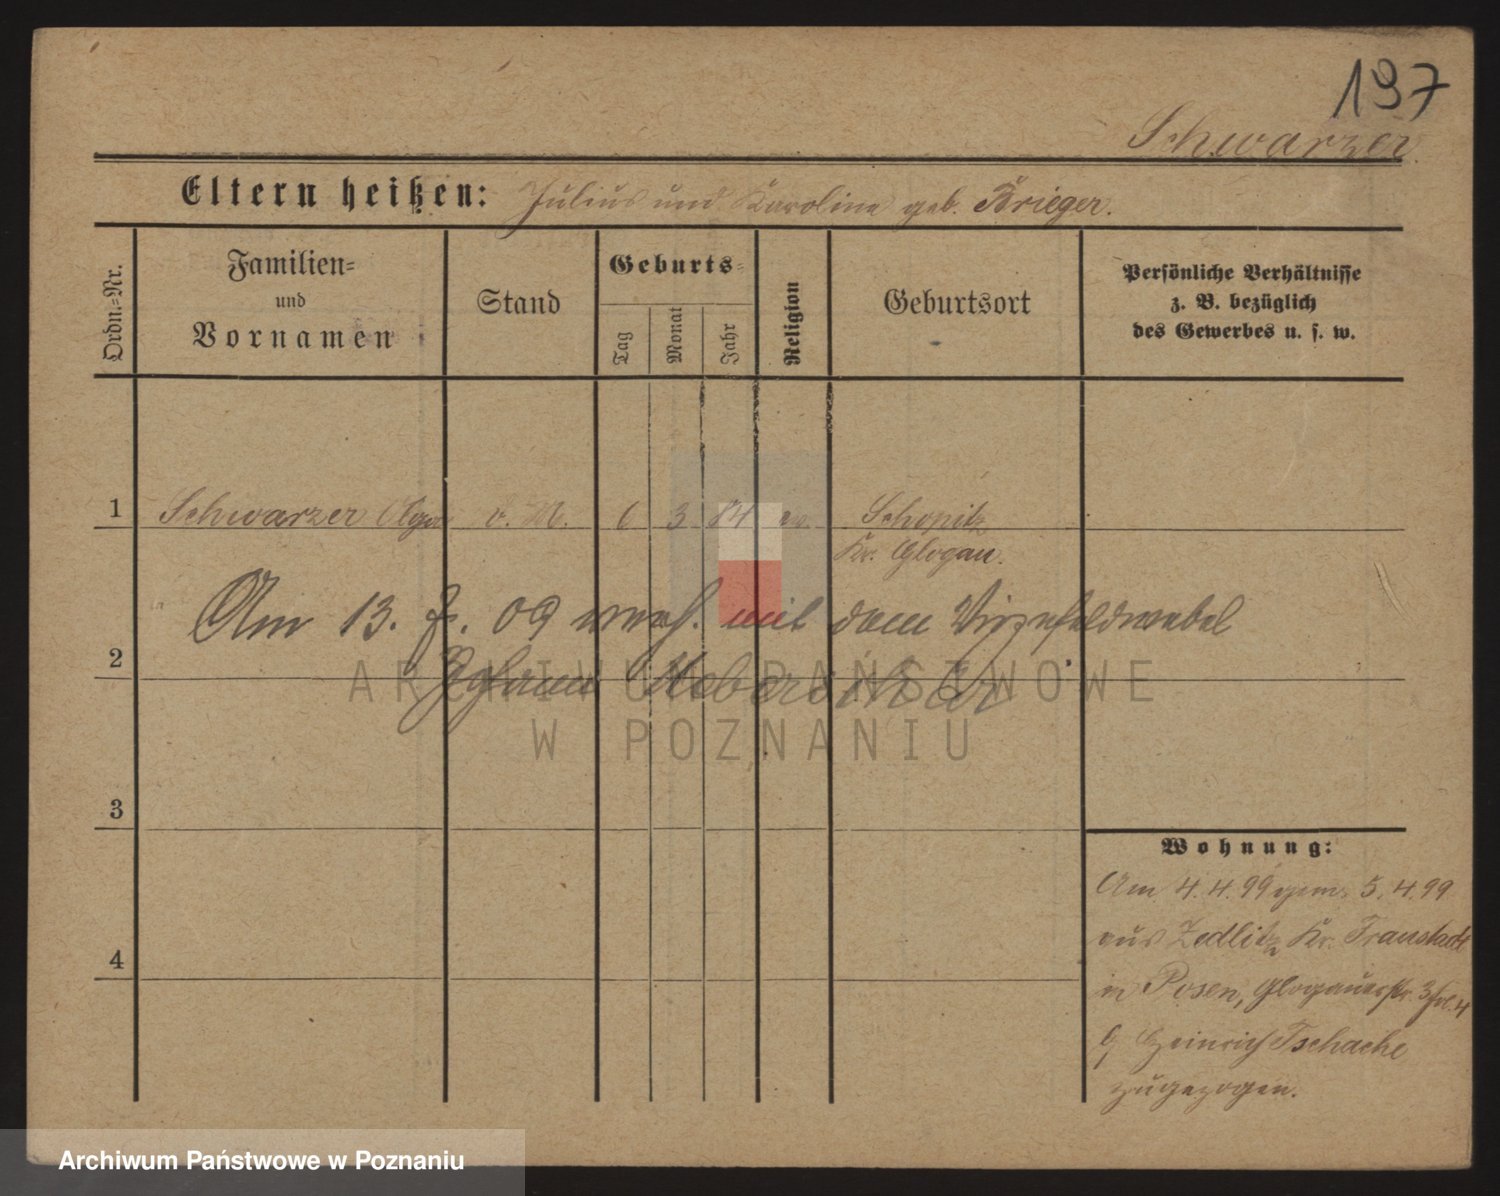 197
Schwarzer
Eltern heißen: Julius und Karoline geb. Krieger.
Ordn.-Nr.
Familien-
und
Vornamen
Stand
Geburts-
Tag
Monat
Jahr
Religion
Geburtsort
Persönliche Verhältnisse
z. B. bezüglich
des Gewerbes u. s. w.
1 Schwarzer Olga o. M. 6 3 84 ev. Schopitz
Kr. Glogau.
Am 13. 7. 09 verh. mit dem Vizefeldwebel
2
Johann Ueberschär
ARCHIWUM PAŃSTWOWE
W POZNANIU
3
Wohnung:
Am 4. 4. 99 gem. 5. 4. 99
aus Zedlitz Kr. Fraustadt
4
in Posen, Glogauerstr. 3
b/ Heinrich Tschache
zugezogen.
Archiwum Państwowe w Poznaniu